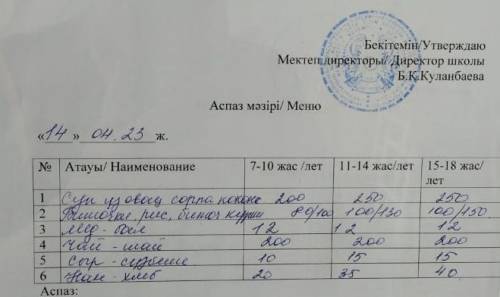 Бекітемін/Утверждаю
Мектеп директоры/ Директор школы
Б.К.Куланбаева
Аспаз мәзірі/ Меню
«14 » 04.23 ж.
№ Атауы/ Наименование 7-10 жас /лет 11-14 жас /лет 15-18 жас/
лет
1 Суп сорпа 200 250 250
2 рис, күріш 80/100 100/130 100/150
3 Мёд - бал 12 12 12
4 Чай - шай 200 200 200
5 Сыр - 10 15 15
6 Нан - хлеб 20 35 40
Аспаз: